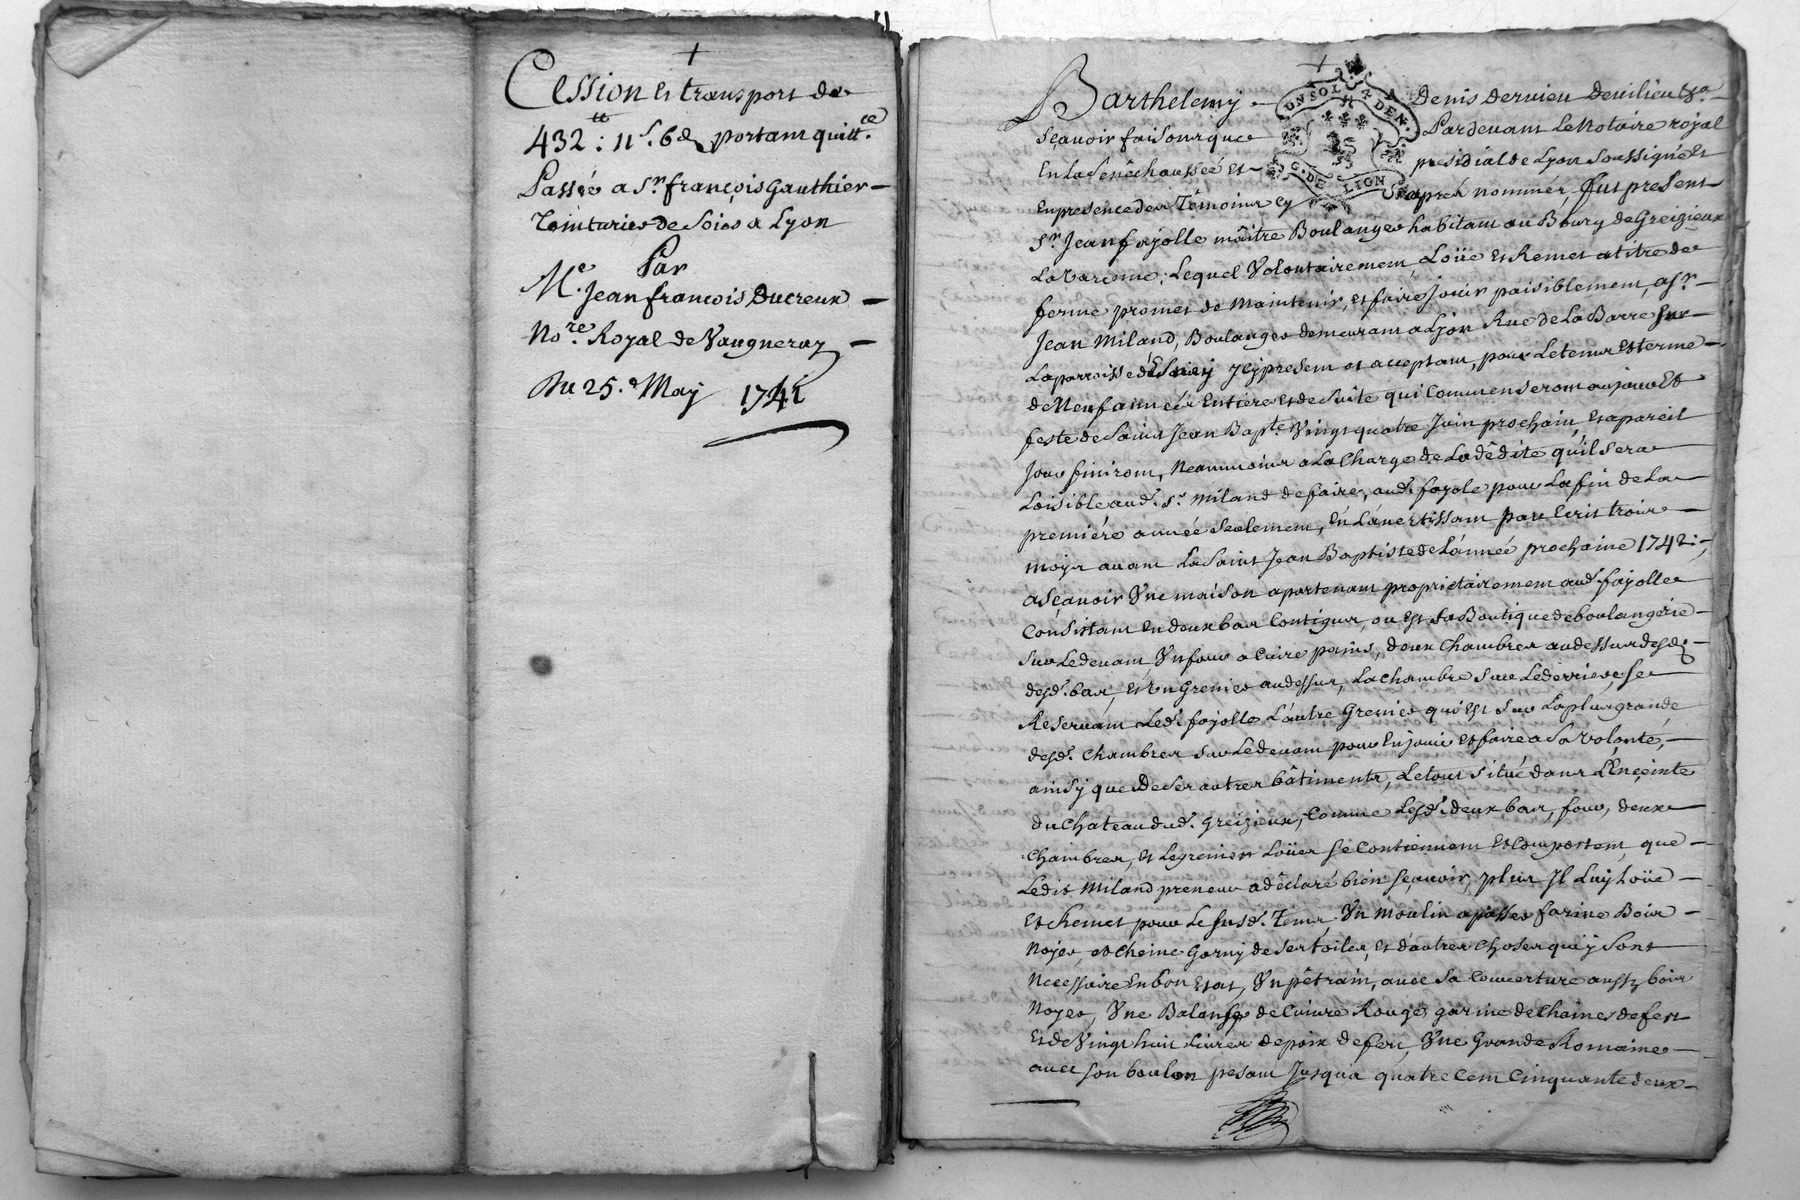 +
Cession et transport de
432 tt : 11 s. 6 d portant quitt.ce
Passée a Sr. françois Gauthier
teinturier de Soies a Lyon
Par
Me. Jean francois Ducreux
Nore. Royal de Vaugneray
Du 25.e May 1741
+
Barthelemy Denis Dervieu Devilieu
Sçavoir faisons que Pardevant Le Notaire royal
En La Senêchaussée et presidial de Lyon Soussigné et
En presence des Têmoins cy aprés nommés, fut present
Sr. Jean fajolle mâitre Boulanger habitant au Bourg de Greizieux
La Varenne, Lequel Volontairement, Loüe et Remet a titre de
ferme promet de Maintenir, et faire Joüir paisiblement, a Sr.
Jean Miland, Boulanger demeurant a Lyon Rue de La Barre sur
La parroisse d'Esnay ycy present et acceptant, pour Le tems et terme
de Neuf années Entiere et de Suite qui Commenseront au jour et
feste de Saint Jean Bapte. Vingt quatre Juin prochain, et a pareil
Jour finiront, Neanmoins a La Charge de La dêdite qu'il Sera
Loisible aud. Sr. Miland de faire, aud. fayole pour La fin de La
premiére année Seulement, En L'avertissant par Ecrit trois
mois avant La Saint Jean Baptiste de L'année prochaine 1742,
a Sçavoir Vne maison apartenant proprietairement aud. fajolle
Consistant En deux bas Contigus, ou Est Sa Boutique de boulangerie
Sur Le devant Vn four a Cuire pains, deux Chambres au dessus desd.
desd. bas, et Vn Grenier au dessus, La chambre Sur Le derriere, se
Reservant Led. fajolle L'autre Grenier qui Est Sur La plus grande
desd. Chambres Sur Le devant pour En jouir et faire a Sa Volonté,
ainsy que De Ses autres bâtiments, Le tout Situé dans L'Enceinte
du Chateau dud. Greizieux, Comme Lesd. deux bas, four, deux
Chambres, et Le grenier Loüés se Contiennent et Comportent, que
Ledit Miland preneur a dêclaré bien Sçavoir, plus Il Luy Loüe
et Remet pour Le susd. Tems Vn Moulin a passer farine Bois
Noyer, et Cheine Garny de Ses toiles, et d'autres Choses qui y Sont
Necessaire En bon Etat, Vn pêtrain, avec Sa Couverture aussy bois
Noyer, Vne Balance de Cuivre Rouge garnie de Chaines de fert
Et de Vingt huit Livres de poix de fert, Vne Grande Romaine
avec Son boulon pesant Jusqu'a quatre Cent Cinquante deux
UN SOL 4 DEN. G. DE LION